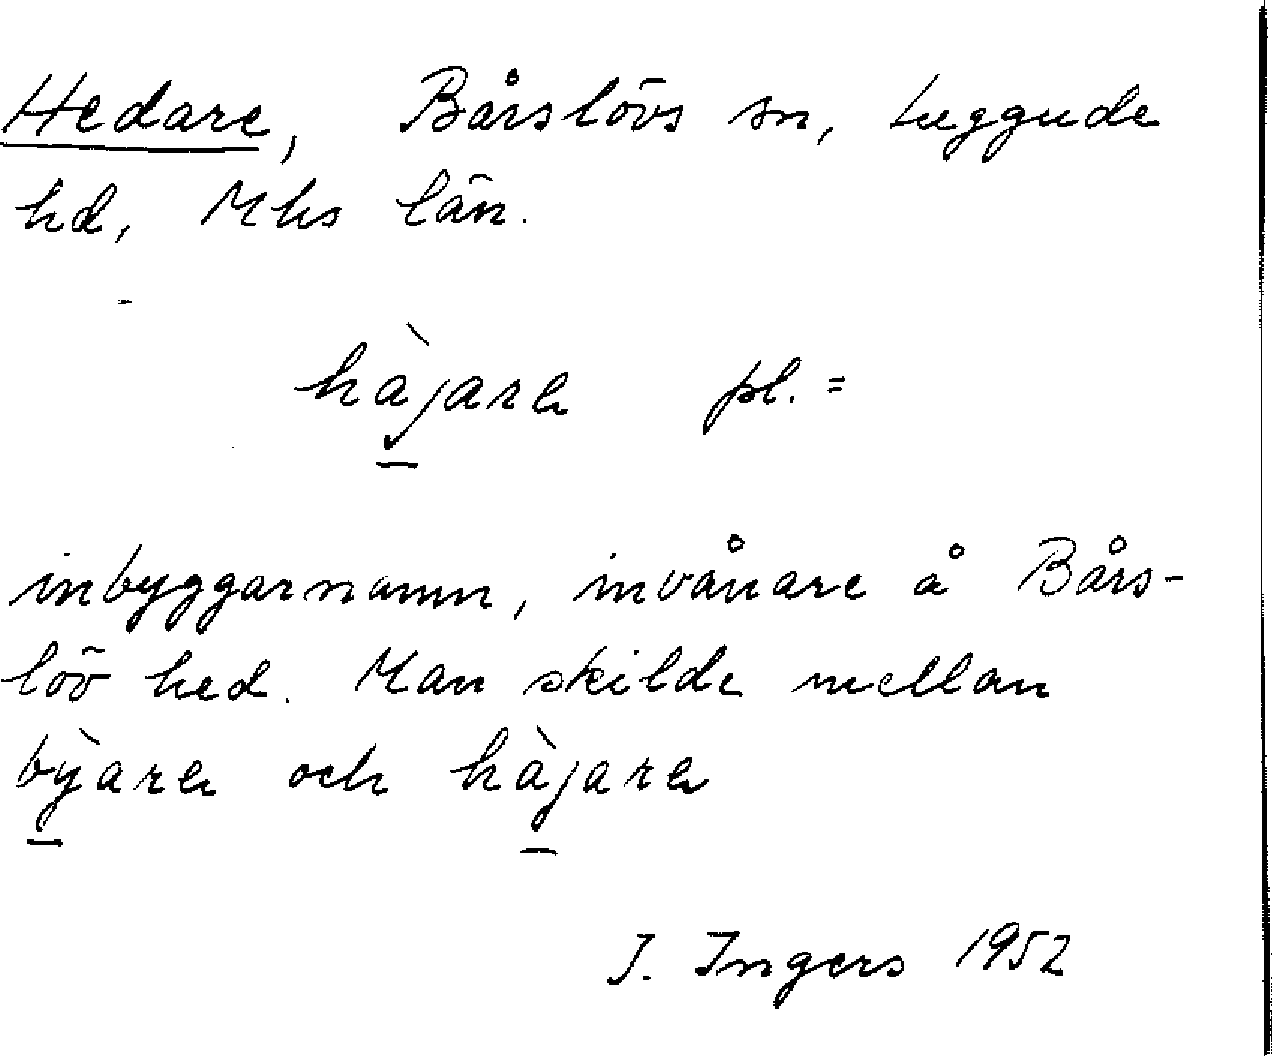 Hedare, Bårslövs sn, Luggude
hd, Mhs län.
hàjare pl. =
inbyggarnamn, invånare å Bårs-
löv hed. Man skilde mellan
bỳare och hàjare
I. Ingers 1952